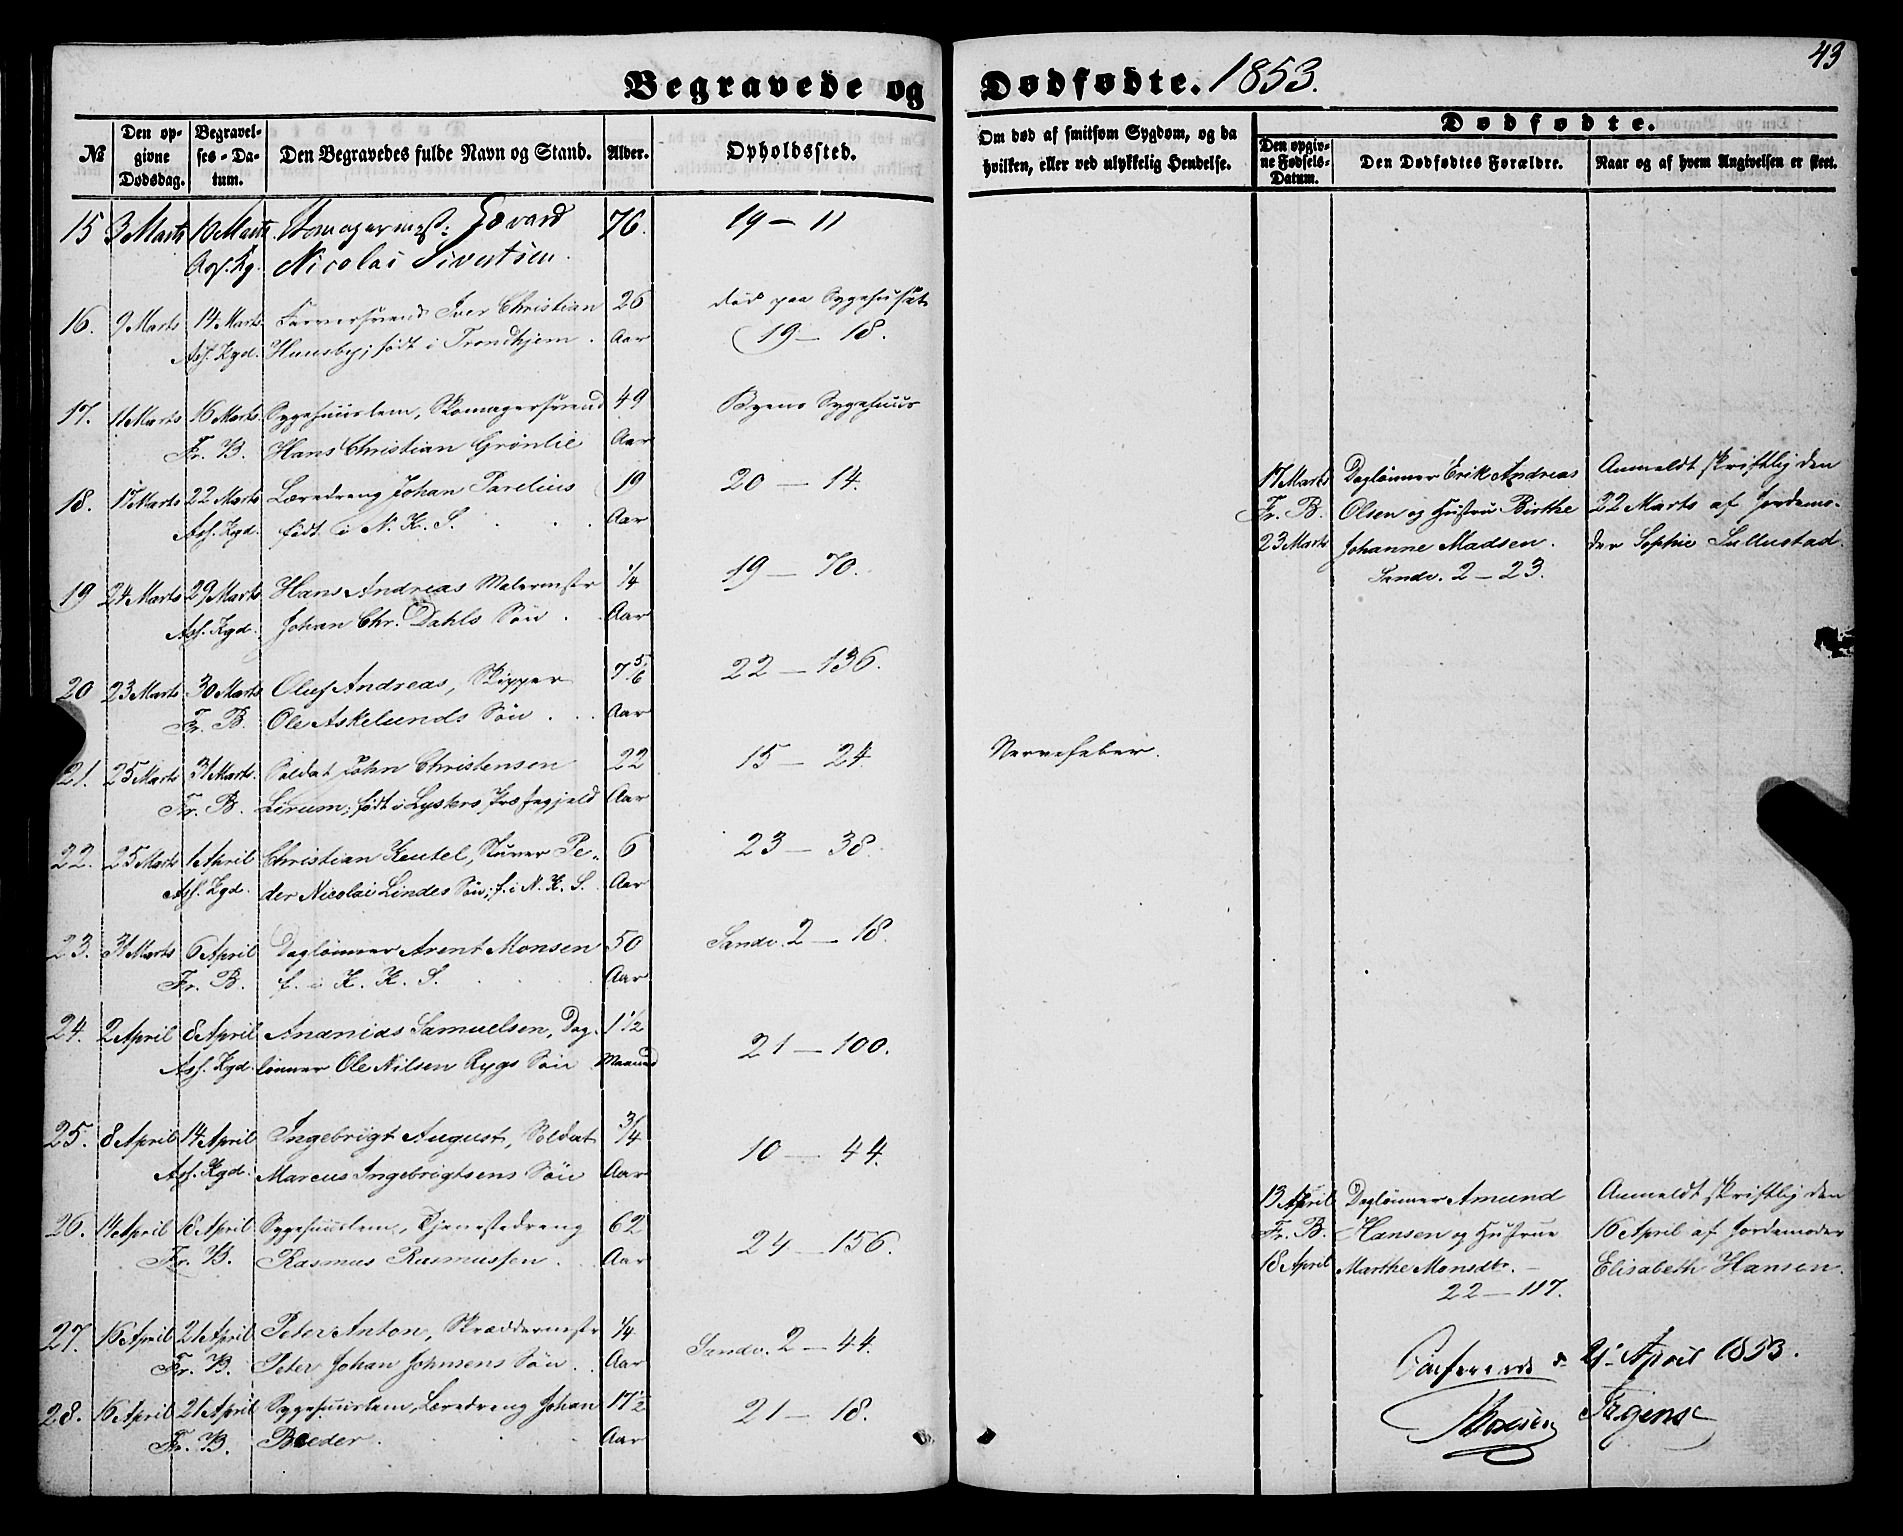 43
Begravede og Dødfødte. 1853.
№
Den opgivne Dødsdag.
Begravelses-Datum.
Den Begravedes fulde Navn og Stand.
Alder.
Opholdssted.
Om død af smitsom Sygdom, og da hvilken, eller ved ulykkelig Hendelse.
Dødfødte.
Den opgivne Fødsels-Datum.
Den Dødfødtes Forældre.
Naar og af hvem Angivelsen er skeet.
15 3 Marts 10 Marts Skomagermest: Edvard 76. 19 — 11
Nicolai Sivertsen.
16. 9 Marts 14 Marts Farversvend Iver Christian 26 død paa Sygehuset
Ass. Kgd. Hunsby; født i Trondhjem. Aar 19 — 18.
17. 11 Marts 16 Marts Sygehuuslem, Skomagersvend 49 Byens Sygehuus
Fr. B. Hans Christian Grønlie Aar
18. 17 Marts 22 Marts Læredreng Johan Parelius 19 20 — 14.
Ass. Kgd. født i N. K. S. Aar
17 Marts Daglønner Erik Andreas Anmeldt skriftlig den
Fr. B. Olsen og Hustru Birthe 22 Marts af Jordemo-
23 Marts Johanne Madsen. der Sophie
Sandv. 2 — 23.
19 24 Marts 29 Marts Hans Andreas Malermstr 1/4 19 — 70.
Ass. Kgd. Johan Chr. Dahls Søn. Aar
20 23 Marts 30 Marts Oluf Andreas, Skipper 7 5/6 22 — 136.
Fr. B. Ole Askelunds Søn. Aar
21. 25 Marts 31 Marts. Soldat John Christensen 22 15 — 24 Nervefeber.
Fr. B. Lirum; født i Lysters Præstegjeld Aar
22. 25 Marts 1 April Christian Keutel, Stuver Pe- 6 23 — 38.
Ass. Kgd. der Nicolai Lindes Søn; f. i N. K. S. Aar
23. 31 Marts 6 April Daglønner Arent Monsen 50 Sandv. 2 — 18.
Fr. B. f. i K. K. S. Aar
24. 2 April 8 April Ananias Samuelsen, Dag- 1 1/2 21 — 100.
Ass. Kgd. lønner Ole Nilsen Rygs Søn Maaned
25. 8 April 14 April Ingebrigt August, Soldat 3/4 10 — 44.
Ass. Kgd. Marcus Ingebrigtsens Søn Aar
26. 14 April 18 April Sygehuuslem, Tjenestedreng 62 24 — 156.
Fr. B. Rasmus Rasmussen. Aar
13 April Daglønner Amund Anmeldt skriftlig den
Fr. B. Hansen og Hustrue 16 April af Jordemoder
18 April Marthe Monsdtr. — Elisabeth Hansen.
22 — 117.
27. 16 April 21 April Peter Anton, Skræddermstr 1/4 Sandv. 2 — 44.
Fr. B. Peter Johan Johnsens Søn. Aar
28. 16 April 21 April Sygehuuslem, Læredreng Johan 17 1/2 21 — 18.
Fr. B. Bøeder. Aar
Confererede d. 21 April 1853.